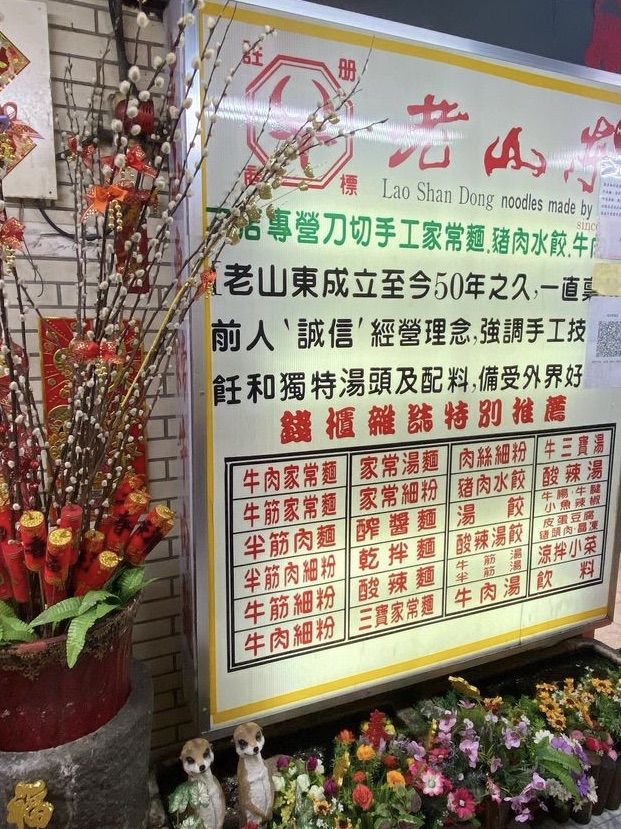 註册
商標
老山
Lao Shan Dong noodles made by
since
店專營刀切手工家常麵.豬肉水餃.牛
老山東成立至今50年之久,一直秉
前人‵誠信′經營理念,強調手工技
飪和獨特湯頭及配料,備受外界好
錢櫃雜誌特別推薦
牛肉家常麵
牛筋家常麵
半筋肉麵
半筋肉細粉
牛筋細粉
牛肉細粉
家常湯麵
家常細粉
醡醬麵
乾拌麵
酸辣麵
三寶家常麵
肉絲細粉
豬肉水餃
湯餃
酸辣湯餃
牛筋湯
半筋湯
牛肉湯
牛三寶湯
酸辣湯
牛腸.牛腱
小魚辣椒
皮蛋豆腐
豬頭肉.晶凍
涼拌小菜
飲料
福